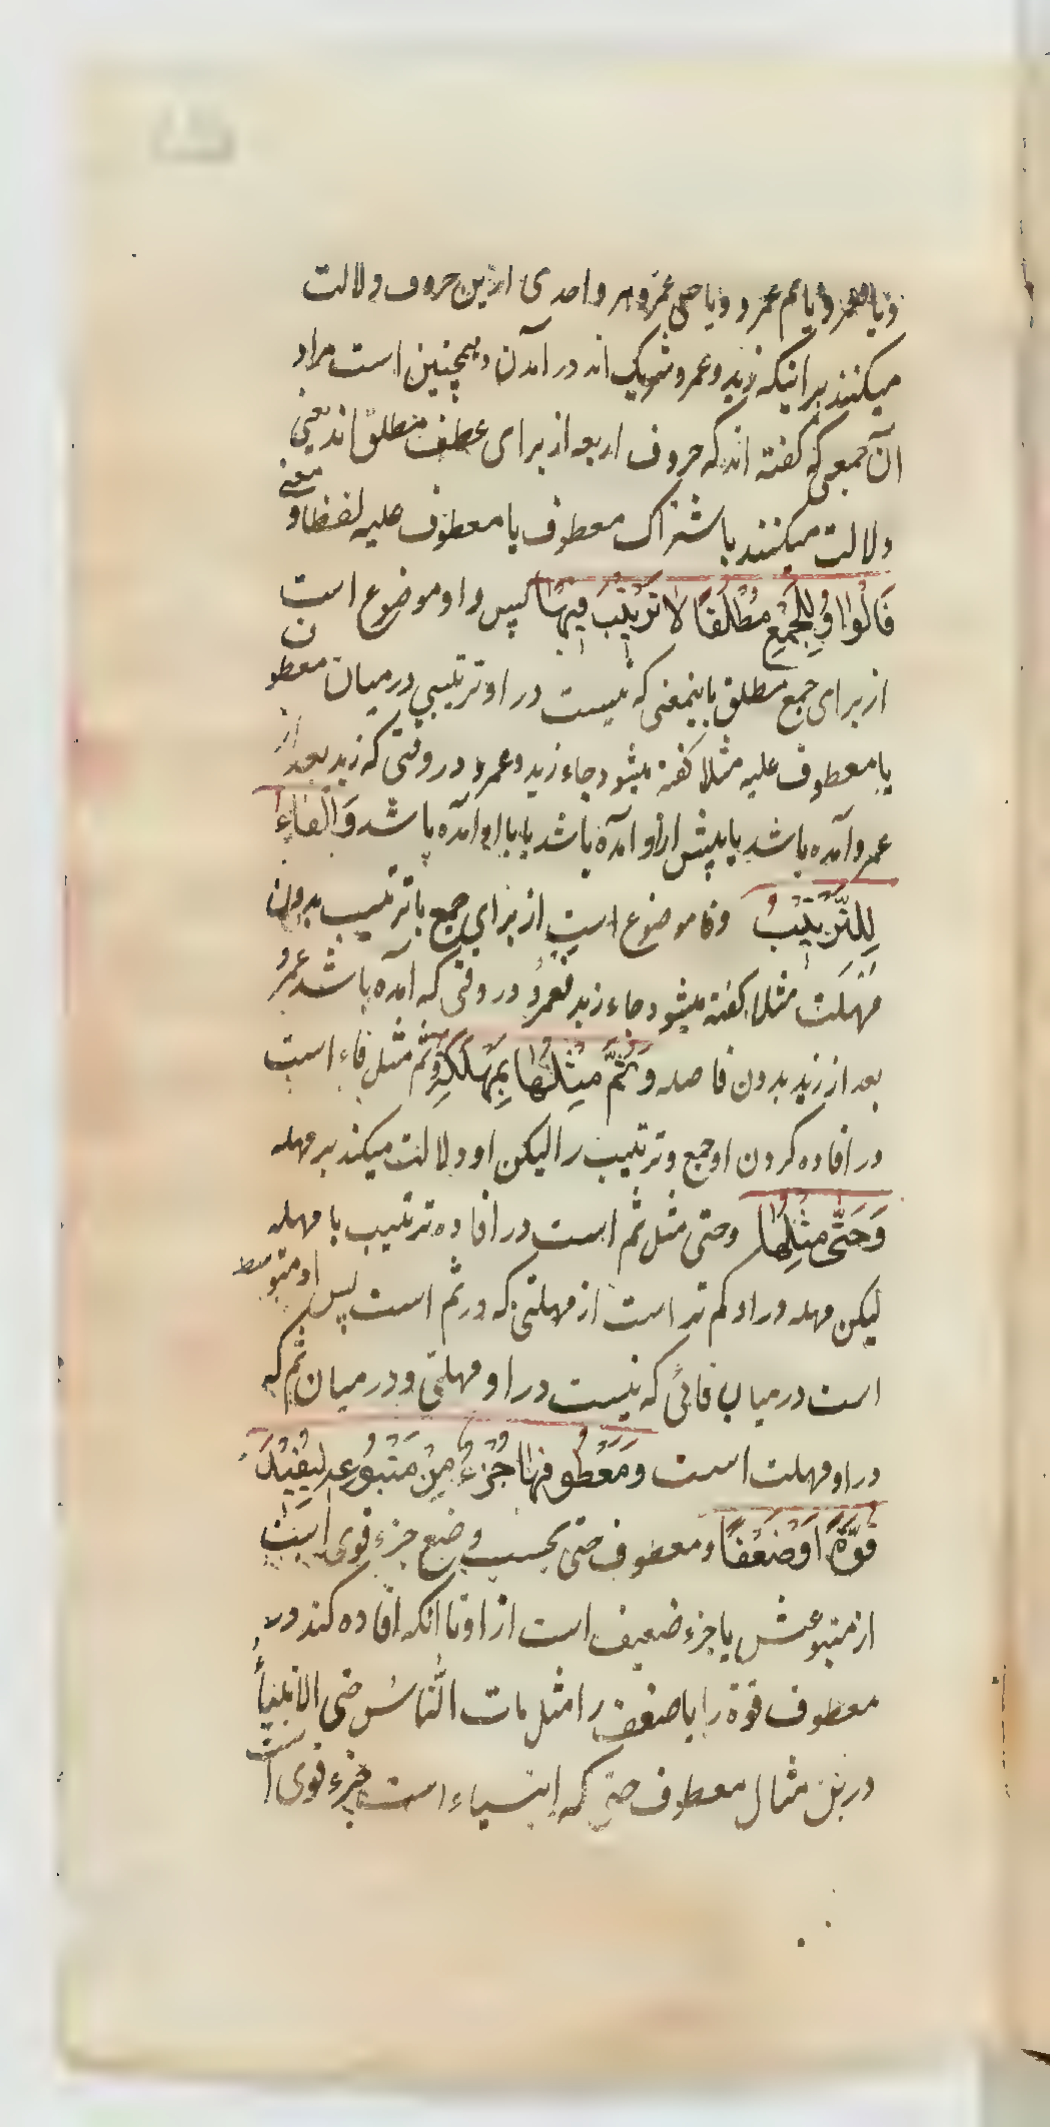 و یا فعمرو یا ثم عمرو و یا حتی عمرو هر واحدی ازین حروف دلالت
میکنند بر اینکه زید و عمرو شریک اند در آمدن و همچنین است مراد
آن جمعی که گفته اند که حروف اربعه از برای عطف مطلق اند یعنی
دلالت میکنند باشتراک معطوف با معطوف علیه لفظا و معنی
فَالْوَاوُ لِلْجَمْعِ مُطْلَقًا لَا تَرْتِیْبَ فِیْهَا پس واو موضوع است
از برای جمع مطلق باینمعنی که نیست در او ترتیبی در میان معطوف
با معطوف علیه مثلا گفته میشود جاء زید و عمرو در وقتی که زید بعد از
عمرو آمده باشد یا پیش از او آمده باشد یا با او آمده باشد وَالْفَاءُ
لِلتَّرْتِیْبِ وفا موضوع است از برای جمع با ترتیب بدون
مُهْلَت مثلا گفته میشود جاء زید فعمرو در وقتی که آمده باشد عمرو
بعد از زید بدون فاصله وَثُمَّ مِثْلُهَا بِمُهْلَةٍ و ثم مثل فاء است
در افاده کردن او جمع و ترتیب را لیکن او دلالت میکند بر مهله
وَحَتَّی مِثْلُهَا وحتی مثل ثم است در افاده ترتیب با مهله
لیکن مهله در او کم تر است از مهلتی که در ثم است پس او متوسط
است در میان فائی که نیست در او مهلتی و در میان ثم که
در او مهلت است وَمَعْطُوفُهَا جُزْءٌ مِنْ مَتْبُوعِهِ لِیُفِیْدَ
قُوَّةً اَوْ ضَعْفًا و معطوف حتی بحسب وضع جزء قوی است
از متبوعش یا جزء ضعیف است از او تا انکه افاده کند در
معطوف قوة را یا ضعف را مثل مات الناسُ حتی الانبیاءُ
درین مثال معطوف حتی که انبیاء است جزء قوی است